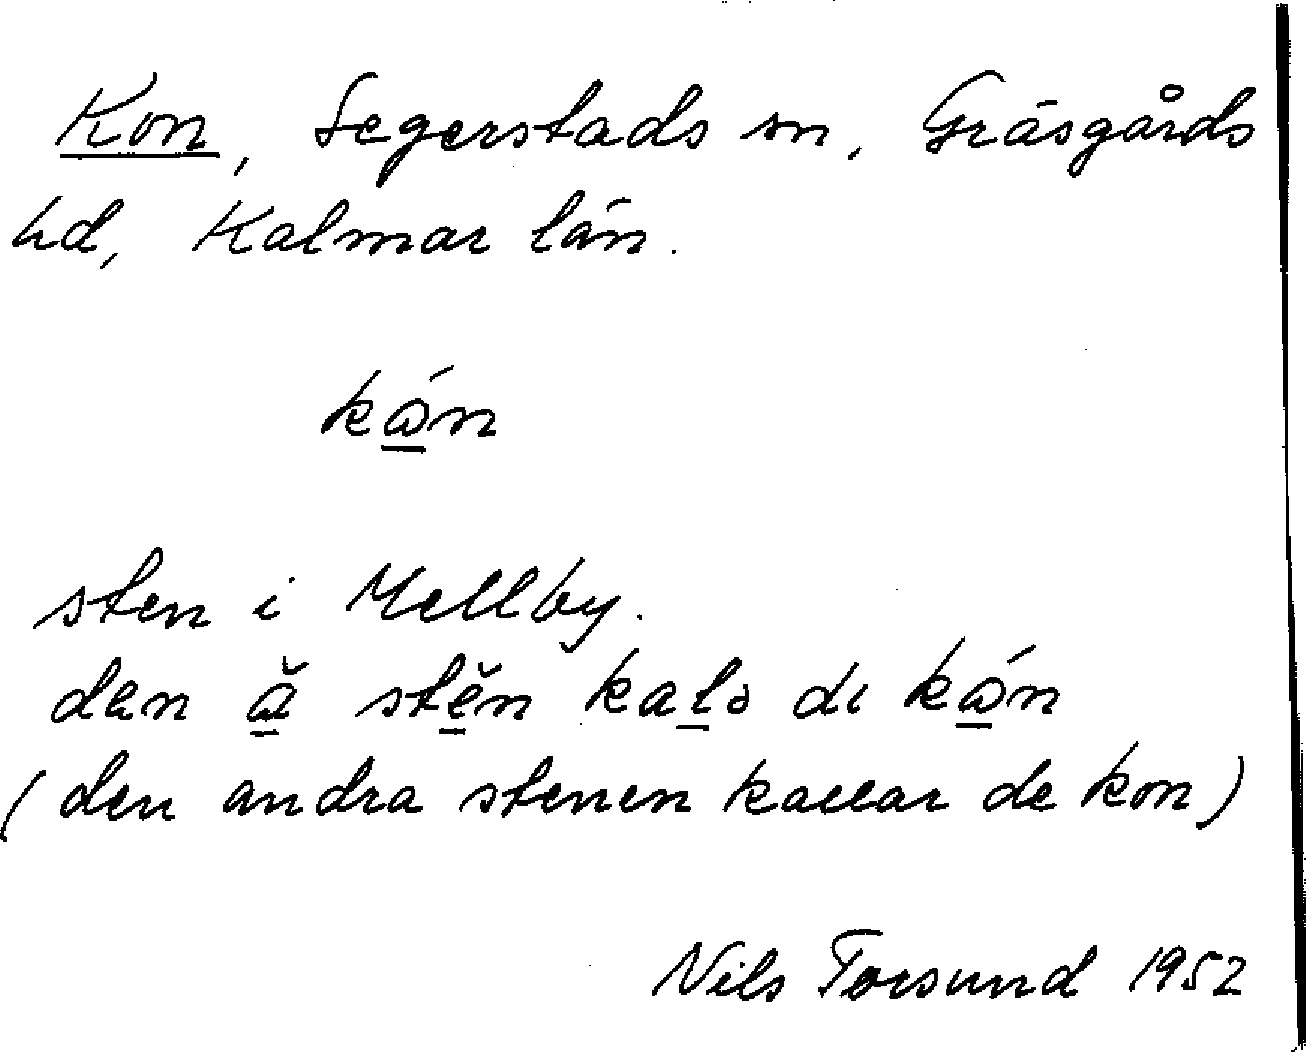 Kon, Segerstads sn, Gräsgårds
hd, Kalmar län.
kɷ́n
sten i Mellby.
den ǎ stěn kalə dı kɷ́n
(den andra stenen kallar de kon)
Nils Torsund 1952